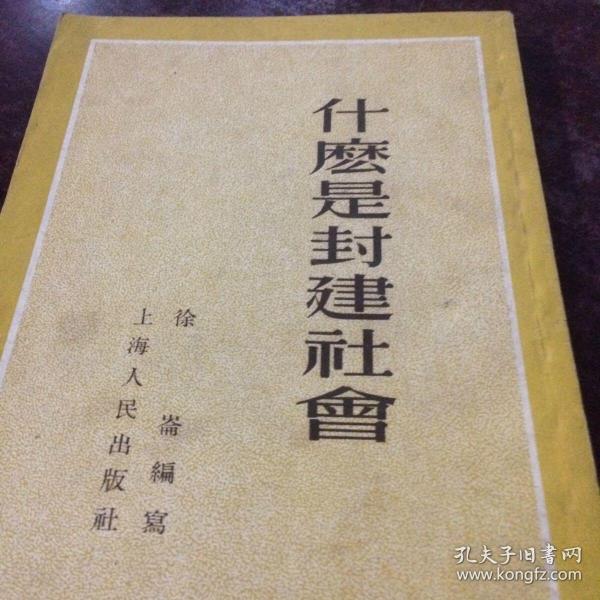 什麽是封建社會
徐崙編寫
上海人民出版社
孔夫子旧書网
www.kongfz.com